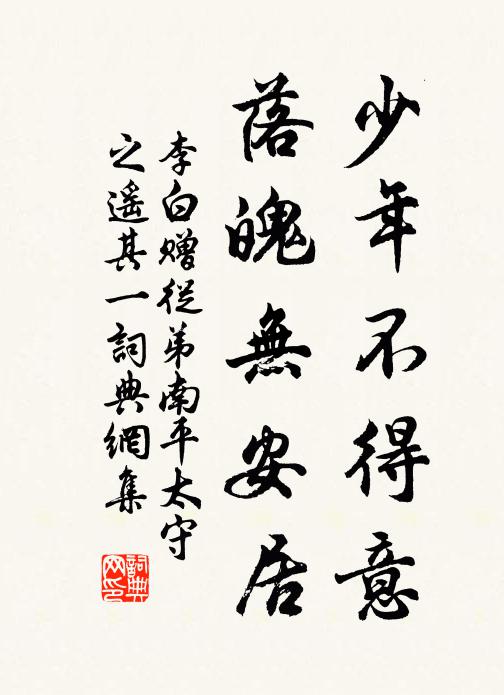 少年不得意
落魄無安居
李白贈従弟南平太守
之遥其一詞典網集
詞典网印